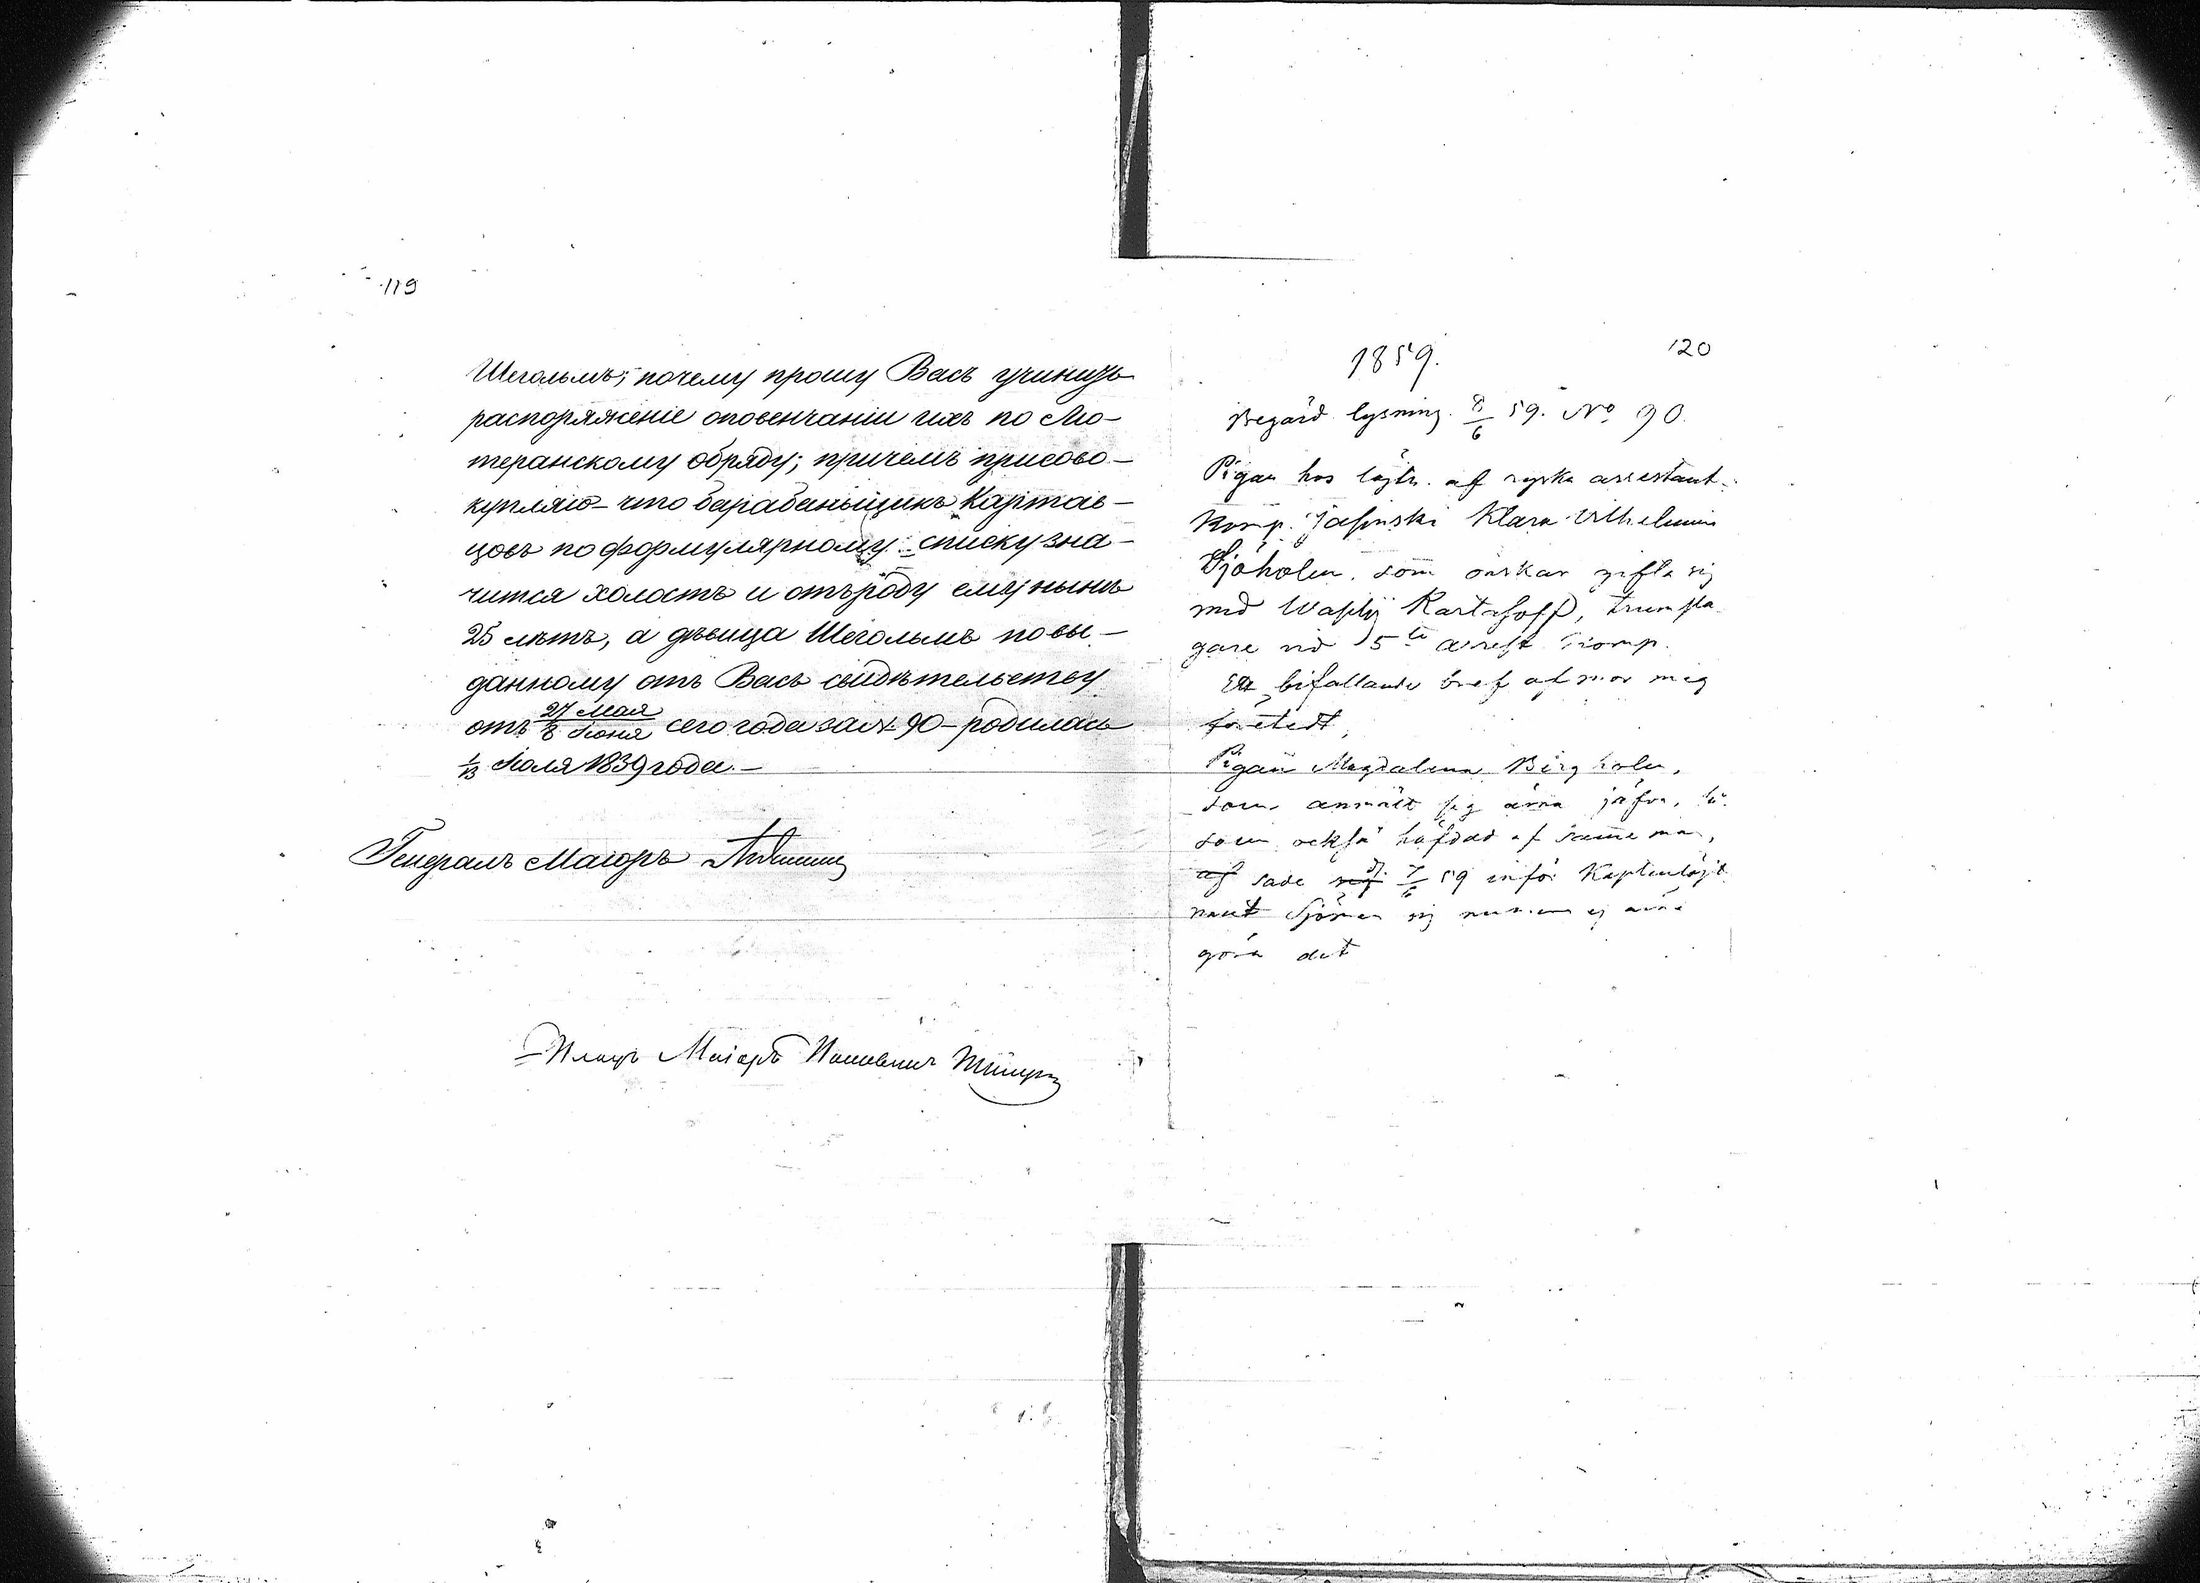 119
Шегольмъ; почему прошу Васъ учинить
распоряженіе оповенчаніи ихъ по Лю-
теранскому обряду; причемъ присово-
купляю что барабаньщикъ Картав-
цовъ по формулярному списку зна-
чится холостъ и отъ роду ему нынѣ
25 лѣтъ, а дѣвица Шегольмъ по вы-
данному отъ Васъ свидѣтельству
отъ 27 Мая / 8 Іюня сего года за № 90 - родилась
1/13 Іюля 1839 года. -
Генералъ Маіоръ
Плацъ Маіоръ
120
1859.
Begärd lysning 8/6 59. No 90.
Pigan hos löjtn. af ryska arrestant-
komp. Jasinski Klara Vilhelmina
Sjöholm, som önskar gifta sig
med Wasilij Kartasoff, trumsla-
gare vid 5te arrest komp.
Ett bifallande bref af mor
företedt
Pigan Magdalena Bergholm,
som anmält sig ärna jäfva,
som också häfdad af samme man,
sade 7/6 59 inför Kaptenlöjt
nant Sjöman sig numera ej ärna
göra det